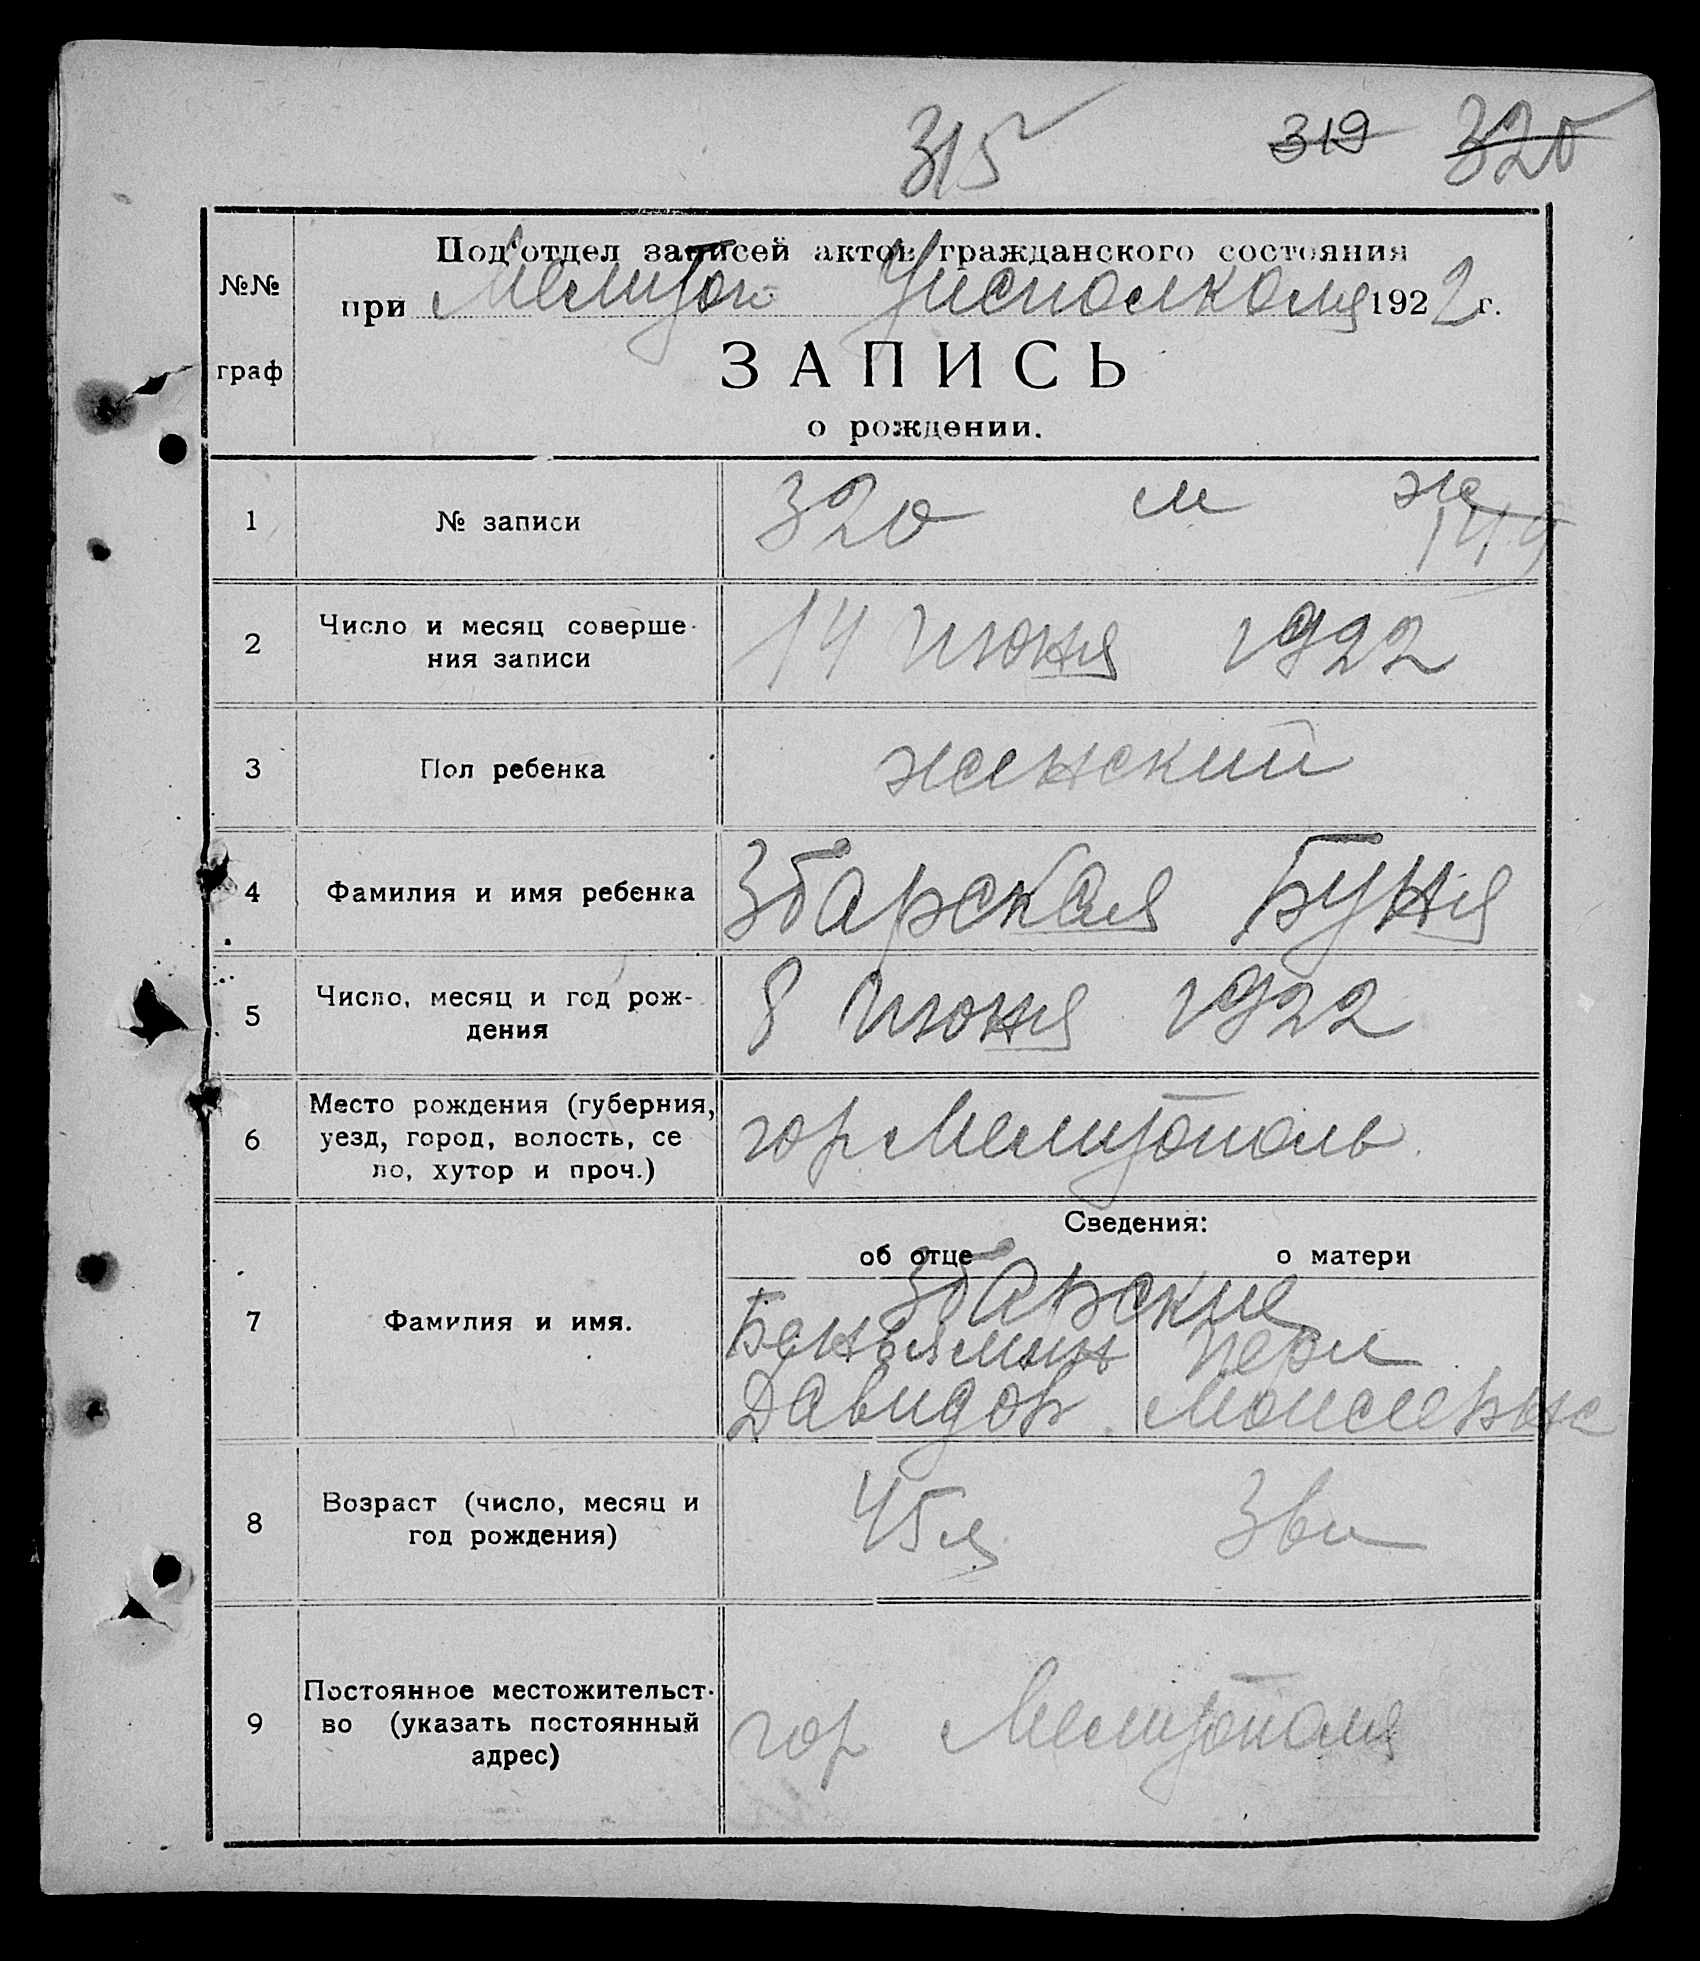 315 319 320
Подотдел записей актов гражданского состояния
№№
при Мелитоп Уисполкома 1922 г.
ЗАПИСЬ
граф
о рождении.
1 № записи 320 м ж
149
2 Число и месяц соверше-
ния записи 14 июня 1922
3 Пол ребенка женский
4 Фамилия и имя ребенка Збарская Буня
5 Число, месяц и год рож-
дения 8 июня 1922
6 Место рождения (губерния,
уезд, город, волость, се
ло, хутор и проч.) гор Мелитополь
Сведения:
об отце о матери
7 Фамилия и имя. Збарские
Беньямин Перл
Давидов Моисеевна
8 Возраст (число, месяц и
год рождения) 45 л
9 Постоянное местожительст-
во (указать постоянный
адрес) гор Мелитополя